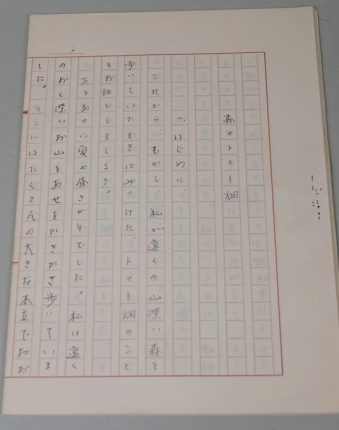 森のトマト畑
はじめに
これから、むかし、私が遠くの山深い森を
歩いていたときにみつけた、トマト畑のこと
をお話ししましょう。
あつい夏の昼さがりでした。私は遠く
のおく深いお山をあせをかきかき歩いていま
した。そこにはたくさんの大きな木立で